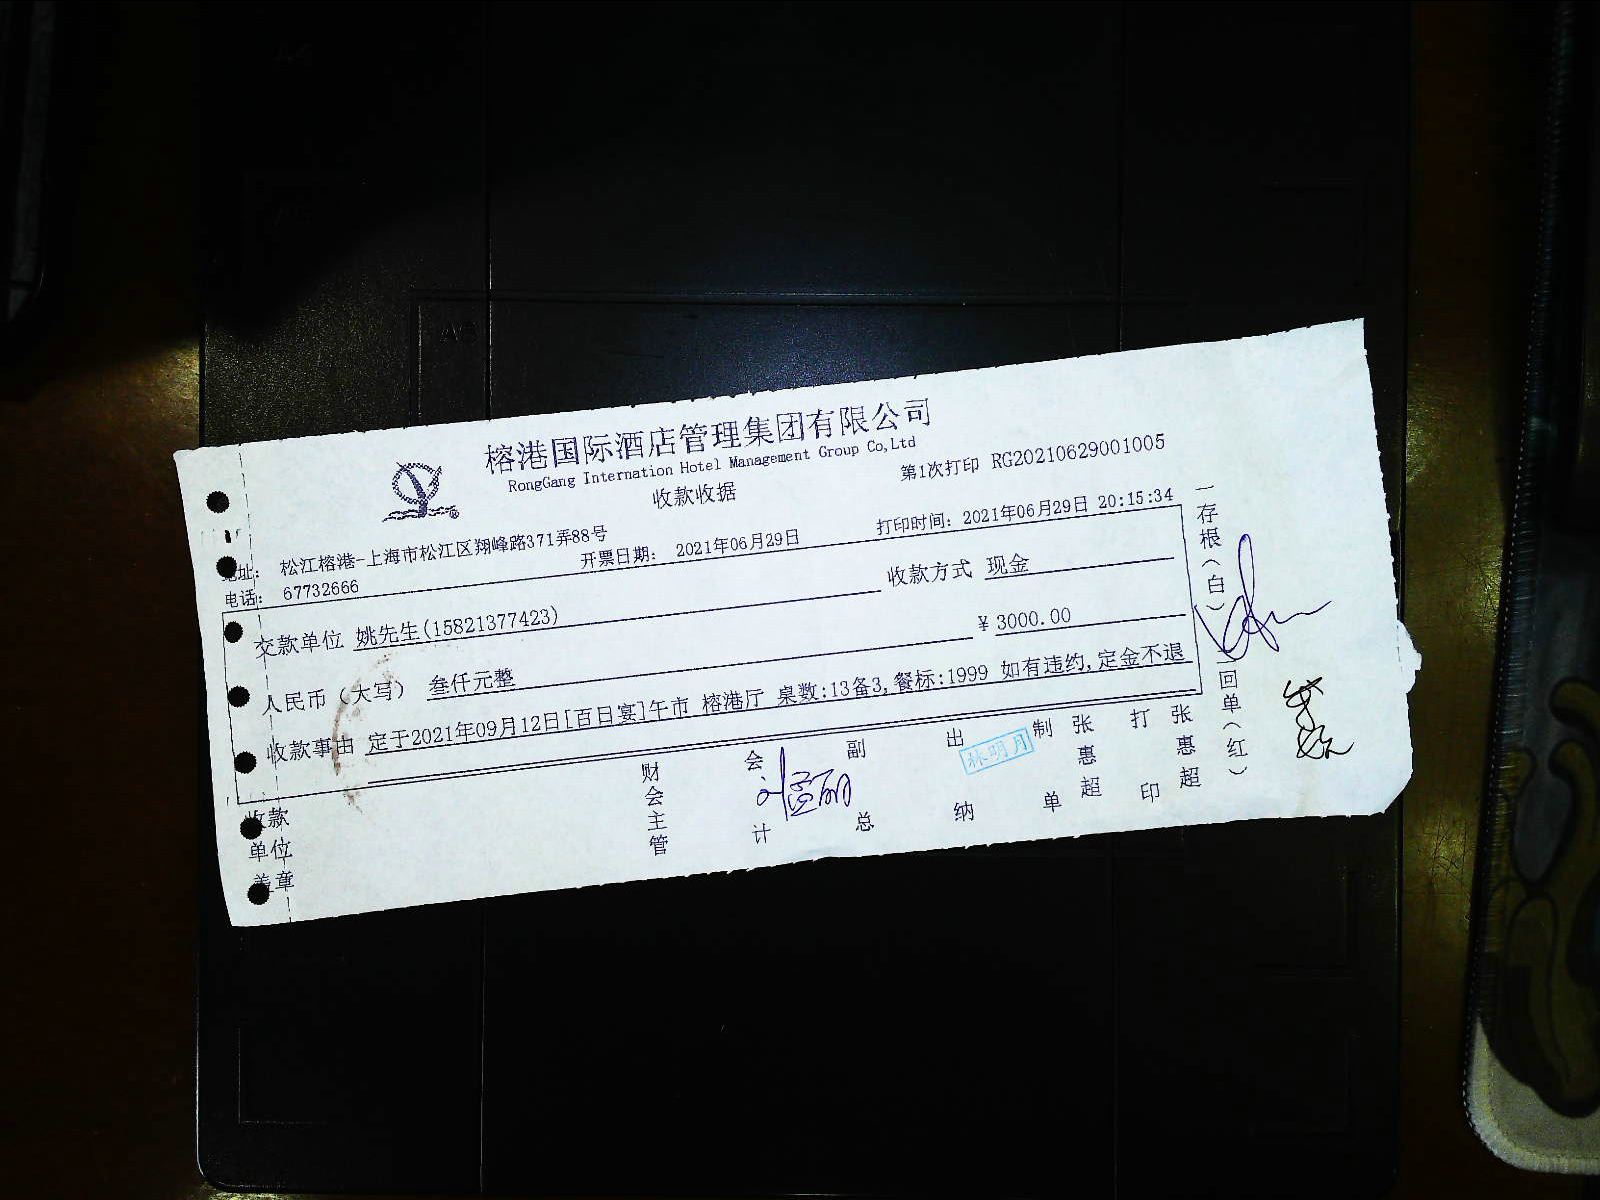 榕港国际酒店管理集团有限公司
RongGang Internation Hotel Management Group Co,Ltd
收款收据
第1次打印 RG20210629001005
地址: 松江榕港-上海市松江区翔峰路371弄88号
电话: 67732666
开票日期: 2021年06月29日
打印时间: 2021年06月29日 20:15:34
交款单位 姚先生(15821377423)
收款方式 现金
人民币（大写） 叁仟元整
¥ 3000.00
收款事由 定于2021年09月12日[百日宴]午市 榕港厅 桌数:13备3,餐标:1999 如有违约,定金不退
收款单位盖章
财会主管
会计
副总
出纳
林明月
制单
张惠超
打印
张惠超
一存根（白）
二回单（红）